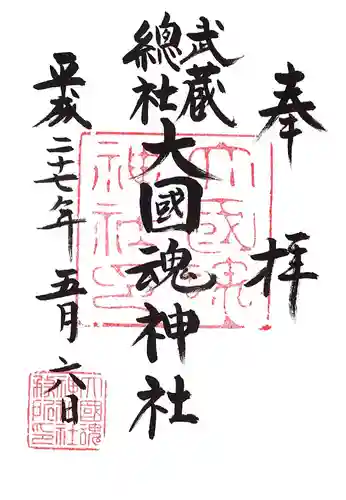 奉拝
武蔵
總社
大國魂神社
平成二十七年五月六日
大國魂
神社印
大國魂
神社